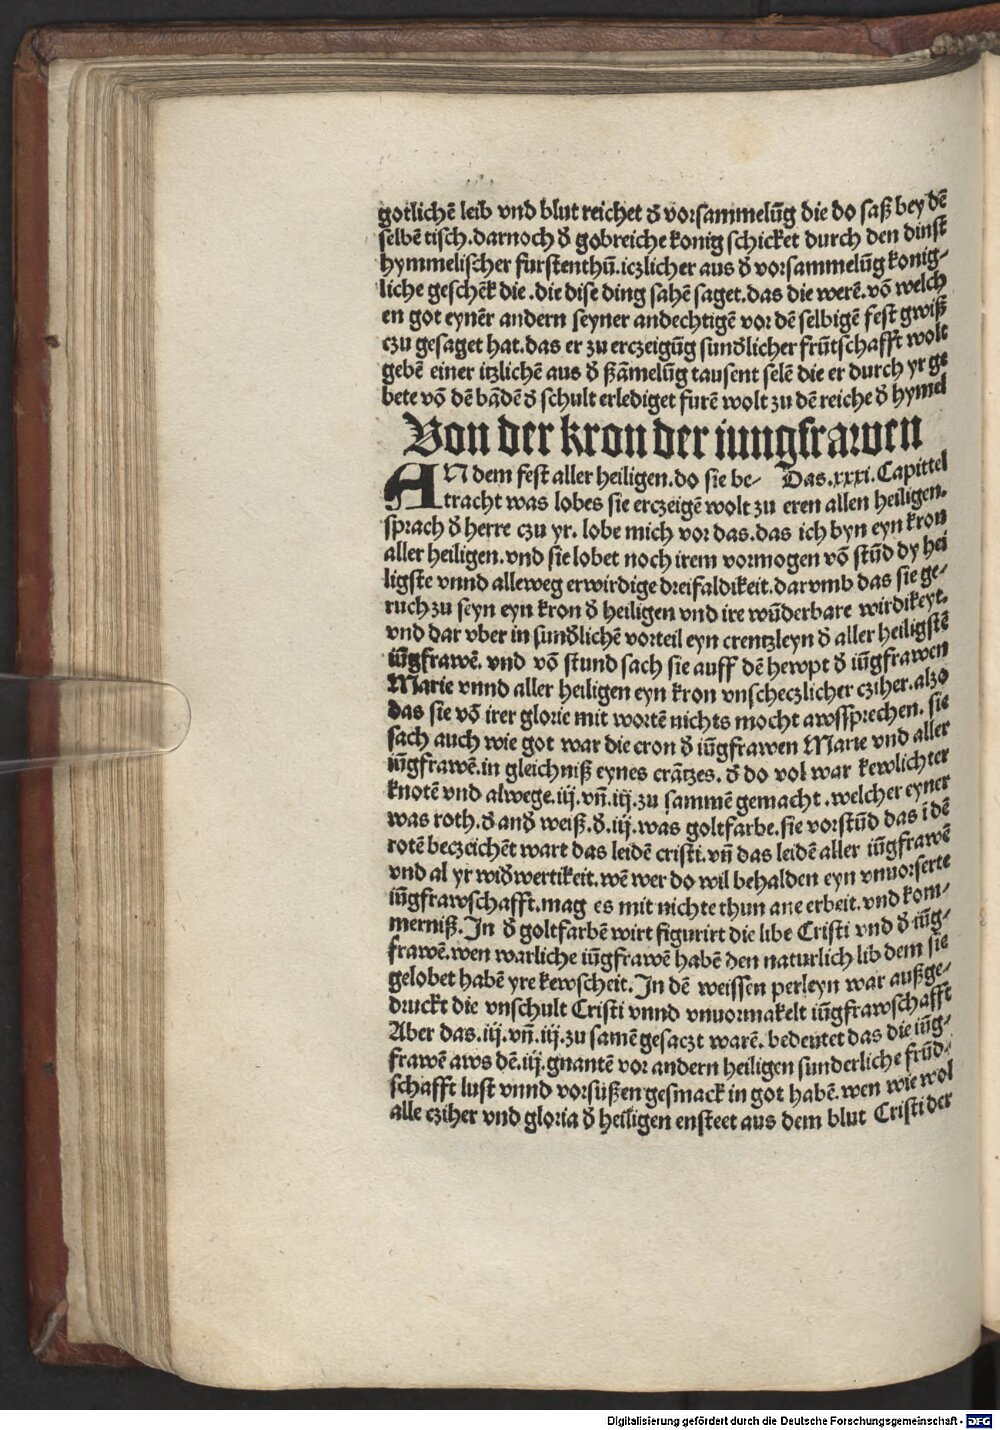 gotlichē leib vnd blut reichet ď vorsammelūg die do saß bey dē
selbē tisch. darnoch ď gobreiche konig schicket durch den dinst
hymmelischer furstenthū. iczlicher aus ď vorsammelūg konig-
liche geschēk die .die dise ding sahē saget. das die werē. vō welch
en got eynēr andern seyner andechtigē vor dē selbigē fest gwiß
czu gesaget hat. das er zu erczeigūg sunďlicher frūtschafft wolt
gebē einer itzlichē aus ď ßāmelūg tausent selē die er durch yr ge
bete vō dē bādē ď schult erlediget furē wolt zu dē reiche ď hymel
Von der kron der iungfrawen
AN dem fest aller heiligen. do sie be- Das .xxxi. Capittel
tracht was lobes sie erczeigē wolt zu eren allen heiligen.
sprach ď herre czu yr. lobe mich vor das. das ich byn eyn kron
aller heiligen. vnd sie lobet noch irem vormogen vō stūd dy hei
ligste vnnd alleweg erwirdige dreifaldikeit. darvmb das sie ge-
ruch zu seyn eyn kron ď heiligen vnd ire wūderbare wirdikeyt.
vnd dar vber in sunďlichē vorteil eyn crentzleyn ď aller heiligstē
iūgfrawē. vnd vō stund sach sie auff dē hewpt ď iūgfrawen
Marie vnnd aller heiligen eyn kron vnscheczlicher cziher. alzo
das sie vō irer glorie mit wortē nichts mocht awssprechen. sie
sach auch wie got war die cron ď iūgfrawen Marie vnd aller
iūgfrawē. in gleichniß eynes crātzes. ď do vol war kewlichter
knotē vnd alwege .iij. vñ .iij. zu sammē gemacht .welcher eyner
was roth. ď anď weiß. ď .iij. was goltfarbe. sie vorstūd das ī dē
rotē beczeichēt wart das leidē cristi. vñ das leidē aller iūgfrawē
vnd al yr wiďwertikeit. wē wer do wil behalden eyn vnuorserte
iūgfrawschafft. mag es mit nichte thun ane erbeit. vnd kom-
merniß. In ď goltfarbē wirt figurirt die libe Cristi vnd ď iūg-
frawē. wen warliche iūgfrawē habē den naturlich lib dem sie
gelobet habē yre kewscheit. In dē weissen perleyn war außge-
druckt die vnschult Cristi vnnd vnuormakelt iūgfrawschafft
Aber das .iij. vñ .iij. zu samē gesaczt warē. bedeutet das die iūg-
frawē aws dē .iij. gnantē vor andern heiligen sunderliche frūd-
schafft lust vnnd vorsüßen gesmack in got habē. wen wie wol
alle cziher vnd gloria ď heiligen ensteet aus dem blut Cristi der
Digitalisierung gefördert durch die Deutsche Forschungsgemeinschaft - DFG